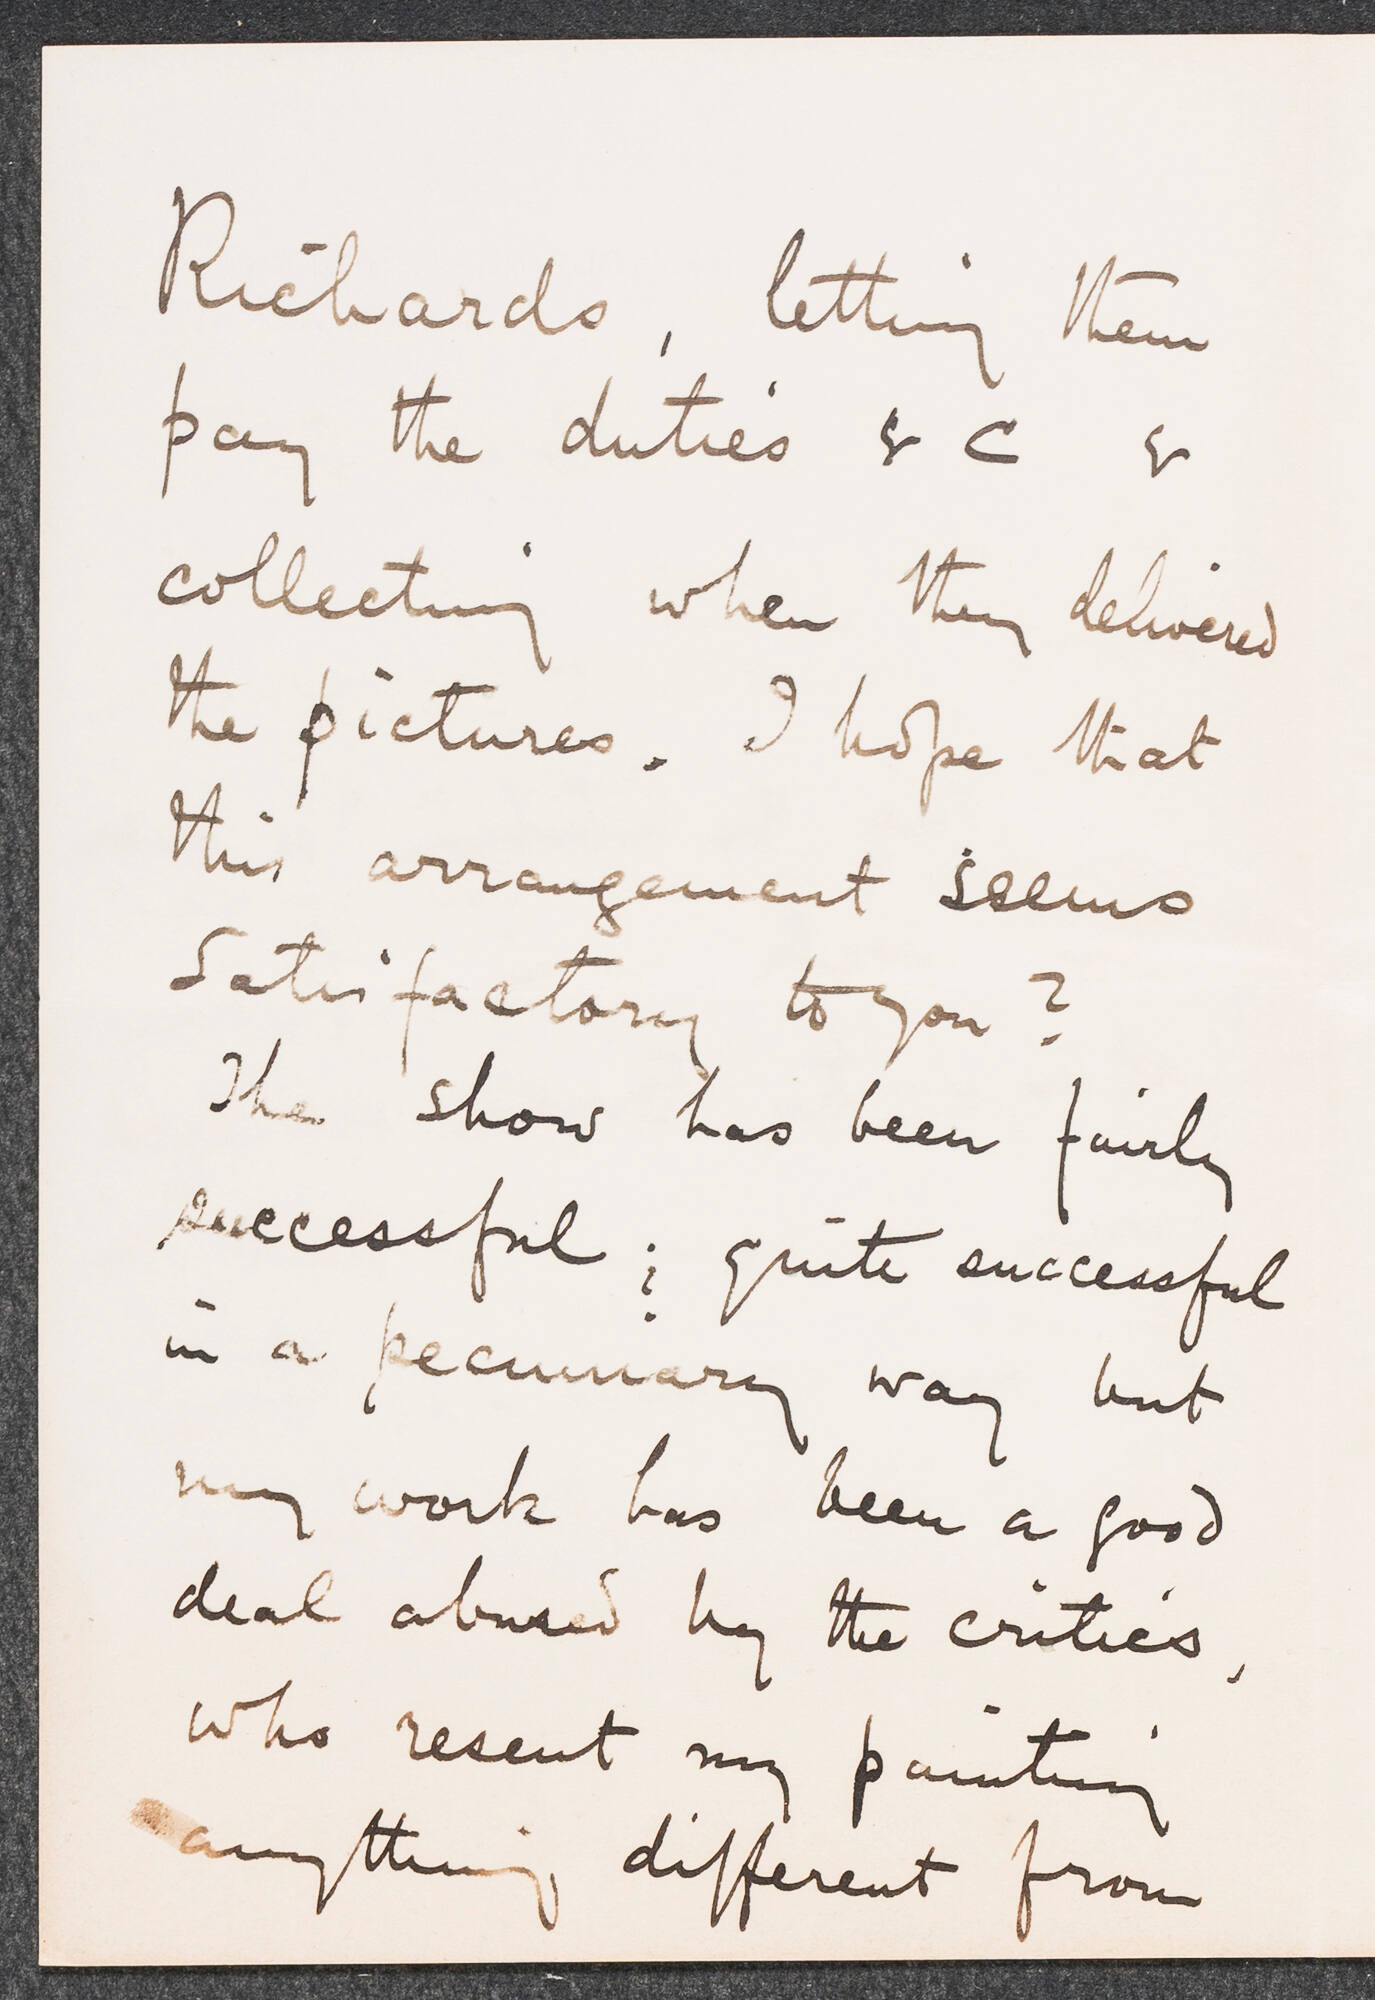 Richards, letting them
pay the duties & C &
collecting when they delivered
the pictures. I hope that
this arrangement seems
satisfactory to you?
The show has been fairly
successful; quite successful
in a pecuniary way but
my work has been a good
deal abused by the critics,
who resent my painting
anything different from